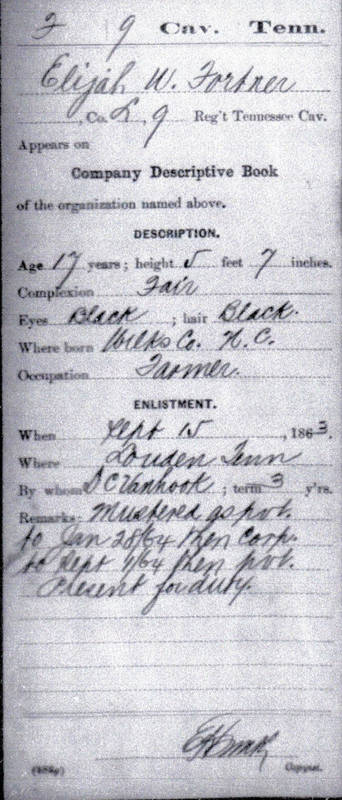 F 9 Cav. Tenn.
Elijah W. Fortner
, Co. L, 9 Reg't Tennessee Cav.
Appears on
Company Descriptive Book
of the organization named above.
DESCRIPTION.
Age 17 years; height 5 feet 7 inches.
Complexion Fair
Eyes Black; hair Black.
Where born Wilks Co. N. C.
Occupation Farmer.
ENLISTMENT.
When Sept 15, 1863.
Where Louden Tenn
By whom D C Vanhook; term 3 y'rs.
Remarks: Mustered as pvt.
to Jan 28/64 then Corp.
to Sept 1/64 then pvt.
Present for duty.
Copyist.